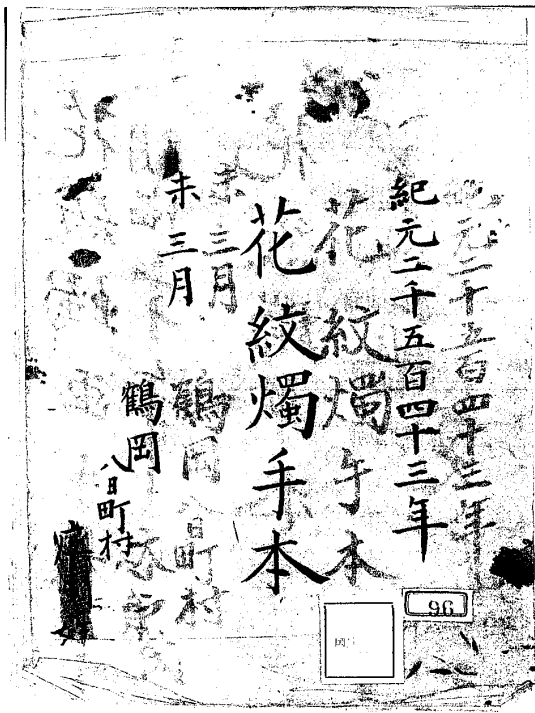 紀元二千五百四十三年
花紋燭手本
未三月
鶴岡
八日町村
96